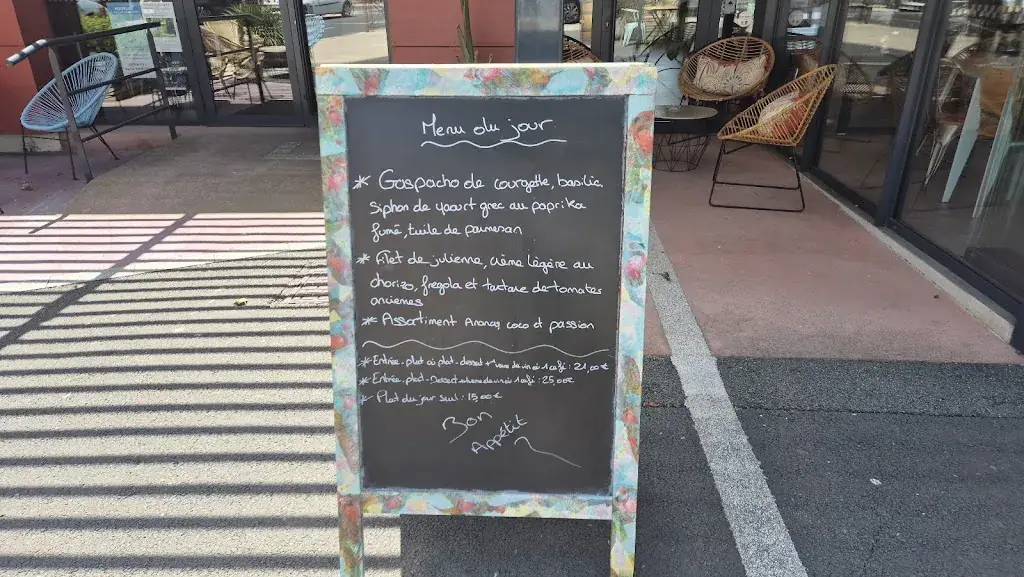 Menu du jour
* Gaspacho de courgette, basilic,
siphon de yaourt grec au paprika
fumé, tuile de parmesan
* Filet de julienne, crème légère au
chorizo, fregola et tartare de tomates
anciennes
* Assortiment Ananas coco et passion
* Entrée-plat ou plat-dessert + 1 verre de vin où 1 café : 21,00€
* Entrée-plat-Dessert + 1 verre de vin où 1 café : 25,00€
* Plat du jour seul : 15,00€
Bon
Appétit